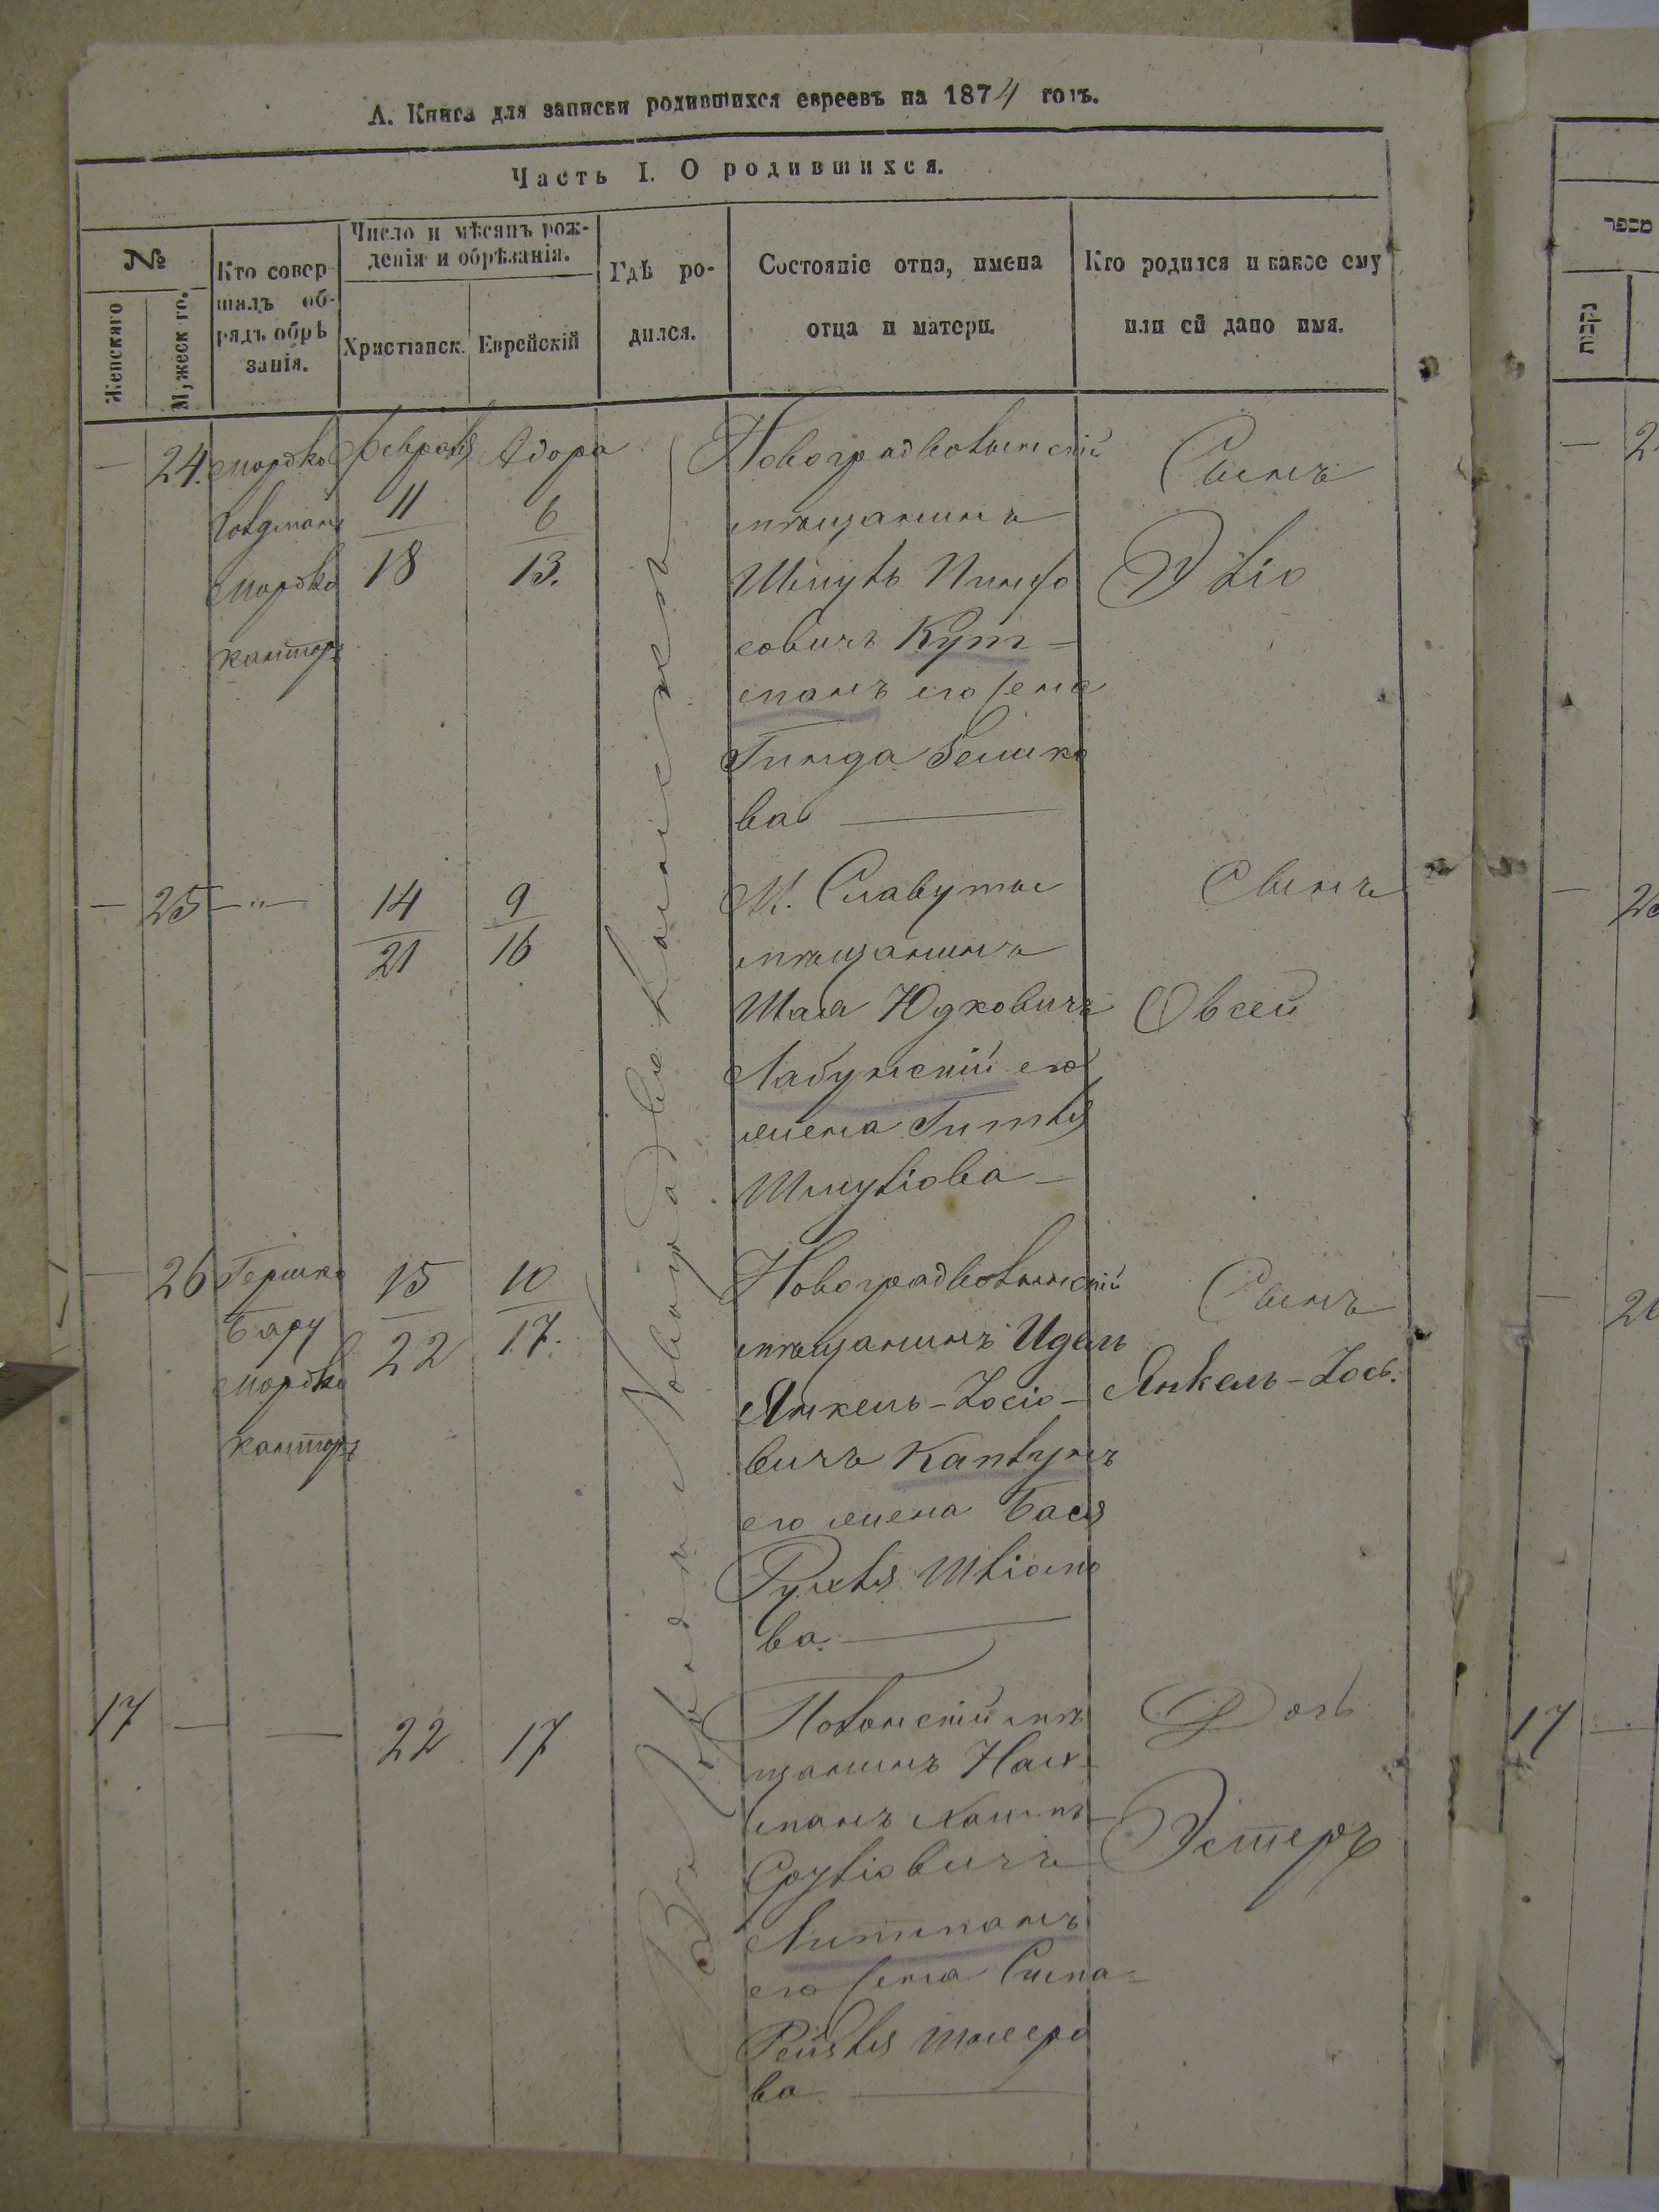 А. Книга для записки родившихся евреевъ на 1874 годъ.
Часть I. О родившихся.
№
Женскаго
Мужескаго.
Кто совер-
шалъ об-
рядъ обрѣ
занія.
Число и мѣсяцъ рож-
денія и обрѣзанія.
Христіанск.
Еврейскій
Гдѣ ро-
дился.
Состояніе отца, имена
отца и матери.
Кто родился и какое ему
или ей дано имя.
— 24. Мордко
Мордко
канторъ
Февраля
11
18
Адора
6
13.
Новоградволынскій
мѣщанинъ
Шмуль Пинхо
совичъ Кут-
манъ его жена
Ба
Сынъ
Эліо
— 25 — " —
14
21
9
16
М. Славуты
мѣщанинъ
Шая Юдковичъ
Лабунскій его
жена Гитля
Шмуліова —
Сынъ
Овсей
— 26 Гершко
Бару
Мордко
канторъ
15
22
10
17.
Новоградволынскій
мѣщанинъ Идель
Янкель-Іосіо-
вичъ Каплунъ
его жена Бася
Рухля Шліомо
ва. —
Сынъ
Янкель-Іось.
17 — —
22
17
мѣ
щанинъ Нах-
манъ Хаимъ-
Сруліовичъ
Литманъ
его жена Сима-
Рейзля
ва —
Дочь
Эстеръ
Въ Новоградволынскѣ
מספר
נקבות
— 2
— 2
— 2
17 —